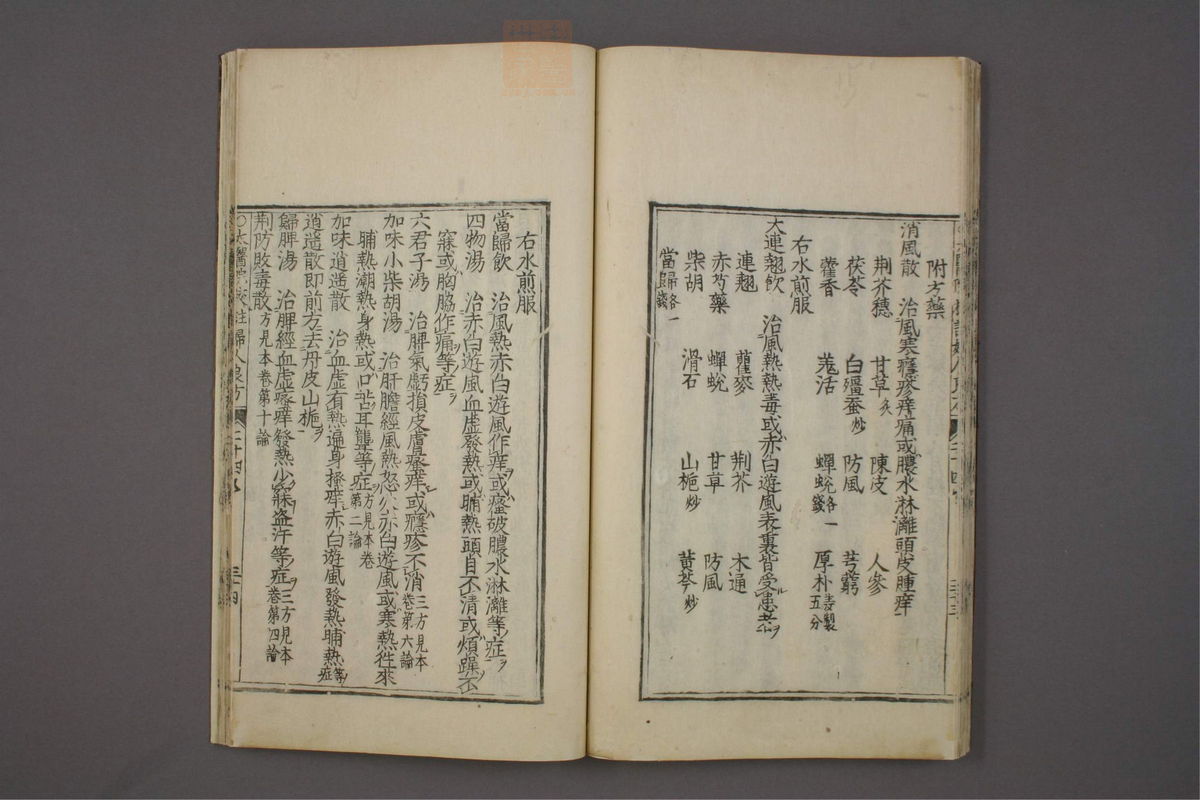 附方藥
消風散 治風寒癮疹痒痛或膿水淋灕頭皮腫痒
荆芥穗 甘草炙 陳皮 人參
茯苓 白殭蚕炒 防風 芎藭
藿香 羗活 蟬蛻各一錢 厚朴姜製五分
右水煎服
大連翹飲 治風熱熱毒或赤白遊風表裏皆受患者ヲ
連翹 瞿麥 荆芥 木通
赤芍藥 蟬蛻 甘草 防風
柴胡 滑石 山梔炒 黃芩炒
當歸各一錢
右水煎服
當歸飲 治風熱赤白遊風作痒或瘙破膿水淋漓等症ヲ
四物湯 治赤白遊風血虛發熱或晡熱頭目不清或煩躁不
寐或胸脇作痛等症ヲ
六君子湯 治脾氣虧損皮膚瘙痒或癮疹不消三方見本卷第六論
加味小柴胡湯 治肝膽經風熱怒火赤白遊風或寒熱徃來
晡熱潮熱身熱或口苦耳聾等症方見本卷第二論
加味逍遥散 治血虛有熱遍身搔痒赤白遊風發熱晡熱等症
逍遥散即前方去丹皮山梔ヲ
歸脾湯 治脾經血虛瘙痒發熱少寐盗汗等症三方見本卷第四論
荆防敗毒散方見本卷第十論
〇太醫院校註婦人良方 二十四卷 三十四